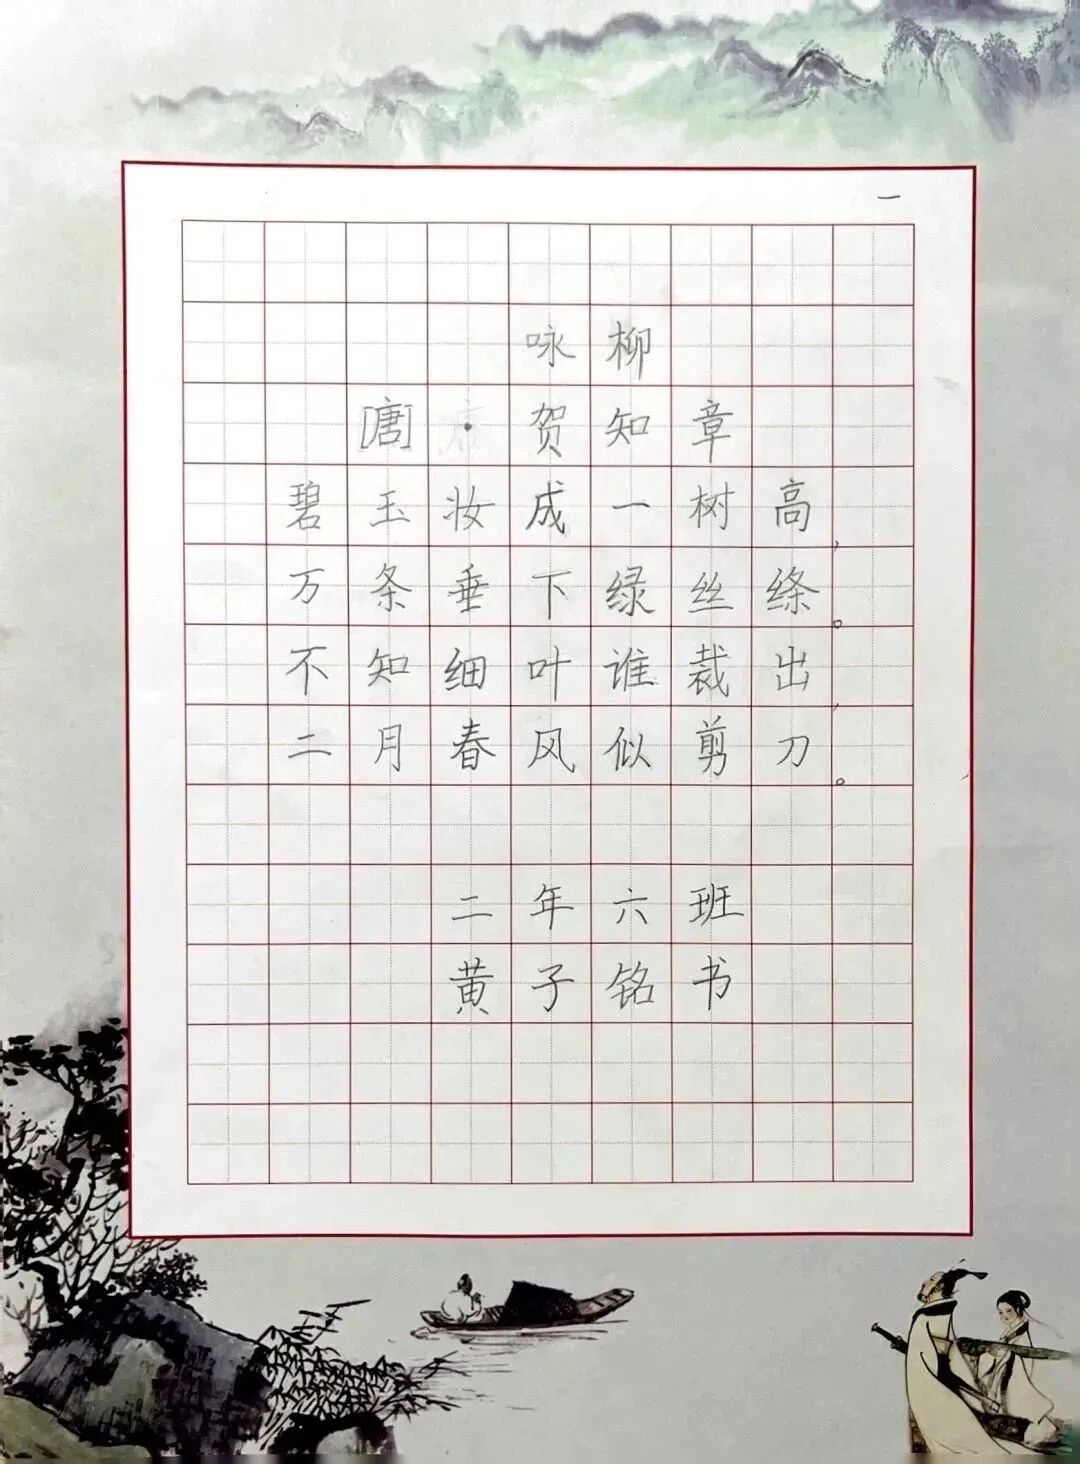 一
咏柳
[唐]·贺知章
碧玉妆成一树高，
万条垂下绿丝绦。
不知细叶谁裁出，
二月春风似剪刀。
二年六班
黄子铭书